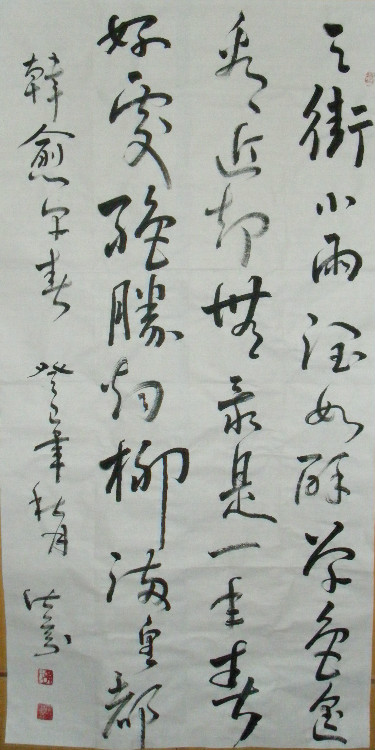 天街小雨润如酥草色遥
看近却無最是一年春
好處绝勝烟柳满皇都
韓愈早春 癸巳年秋月